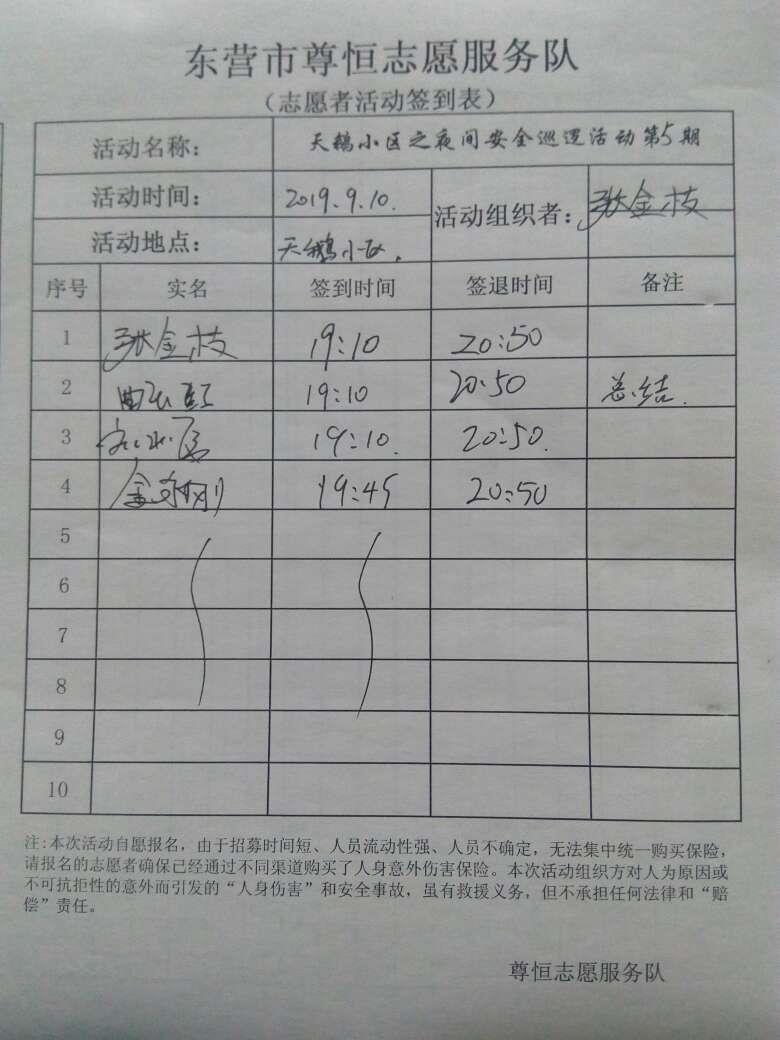 东营市尊恒志愿服务队
（志愿者活动签到表）
活动名称： 天鹅小区之夜间安全巡逻活动第5期
活动时间： 2019.9.10. 活动组织者： 张金枝
活动地点： 天鹅小区.
序号 实名 签到时间 签退时间 备注
1 张金枝 19:10 20:50
2 19:10 20:50 总结.
3 19:10. 20:50.
4 19:45 20:50
5
6
7
8
9
10
注:本次活动自愿报名，由于招募时间短、人员流动性强、人员不确定，无法集中统一购买保险，
请报名的志愿者确保已经通过不同渠道购买了人身意外伤害保险。本次活动组织方对人为原因或
不可抗拒性的意外而引发的“人身伤害”和安全事故，虽有救援义务，但不承担任何法律和“赔
偿”责任。
尊恒志愿服务队